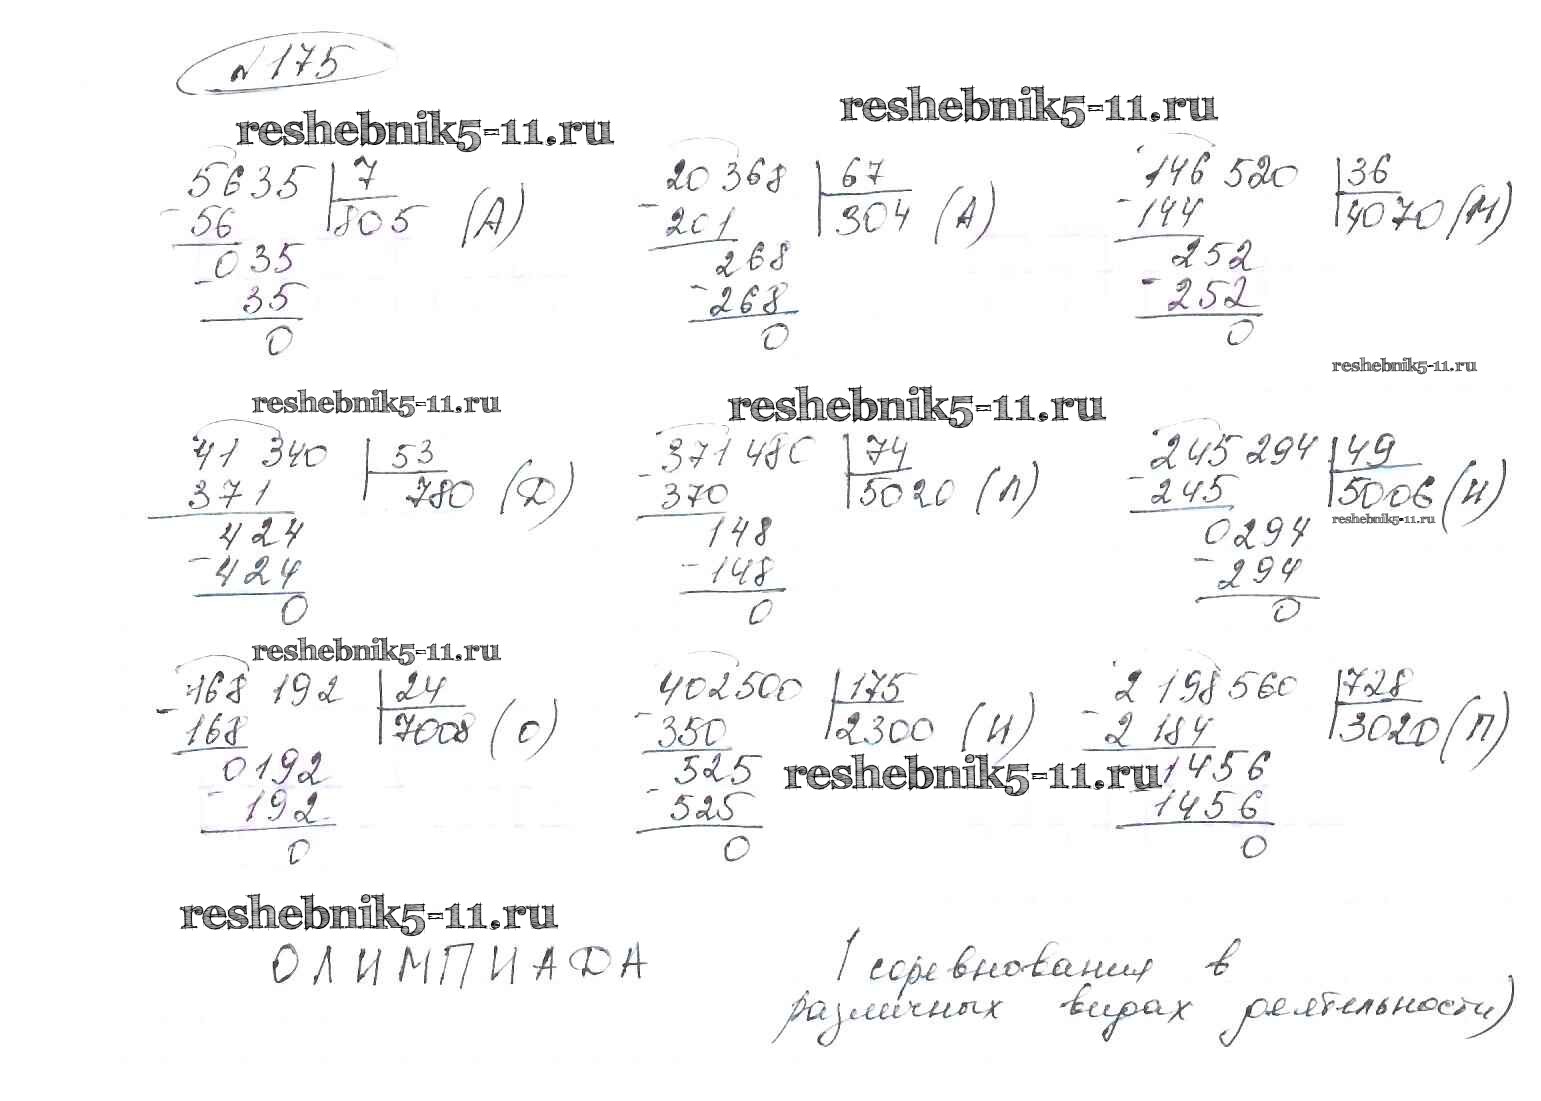 №175
reshebnik5-11.ru
reshebnik5-11.ru
5635 | 7
- 56 | 805 (А)
035
- 35
0
20368 | 67
- 201 | 304 (А)
268
- 268
0
146 520 | 36
- 144 | 4070 (М)
252
- 252
0
reshebnik5-11.ru
reshebnik5-11.ru
reshebnik5-11.ru
41 340 | 53
371 | 780 (Д)
424
- 424
0
371480 | 74
- 370 | 5020 (Л)
148
- 148
0
245 294 | 49
- 245 | 5006 (И)
reshebnik5-11.ru
0294
- 294
0
reshebnik5-11.ru
168 192 | 24
- 168 | 7008 (О)
0192
- 192
0
402500 | 175
- 350 | 2300 (И)
525
- 525
0
reshebnik5-11.ru
2 198 560 | 728
- 2 184 | 3020 (П)
1456
1456
0
reshebnik5-11.ru
ОЛИМПИАДА
(соревнования в
различных видах деятельности)